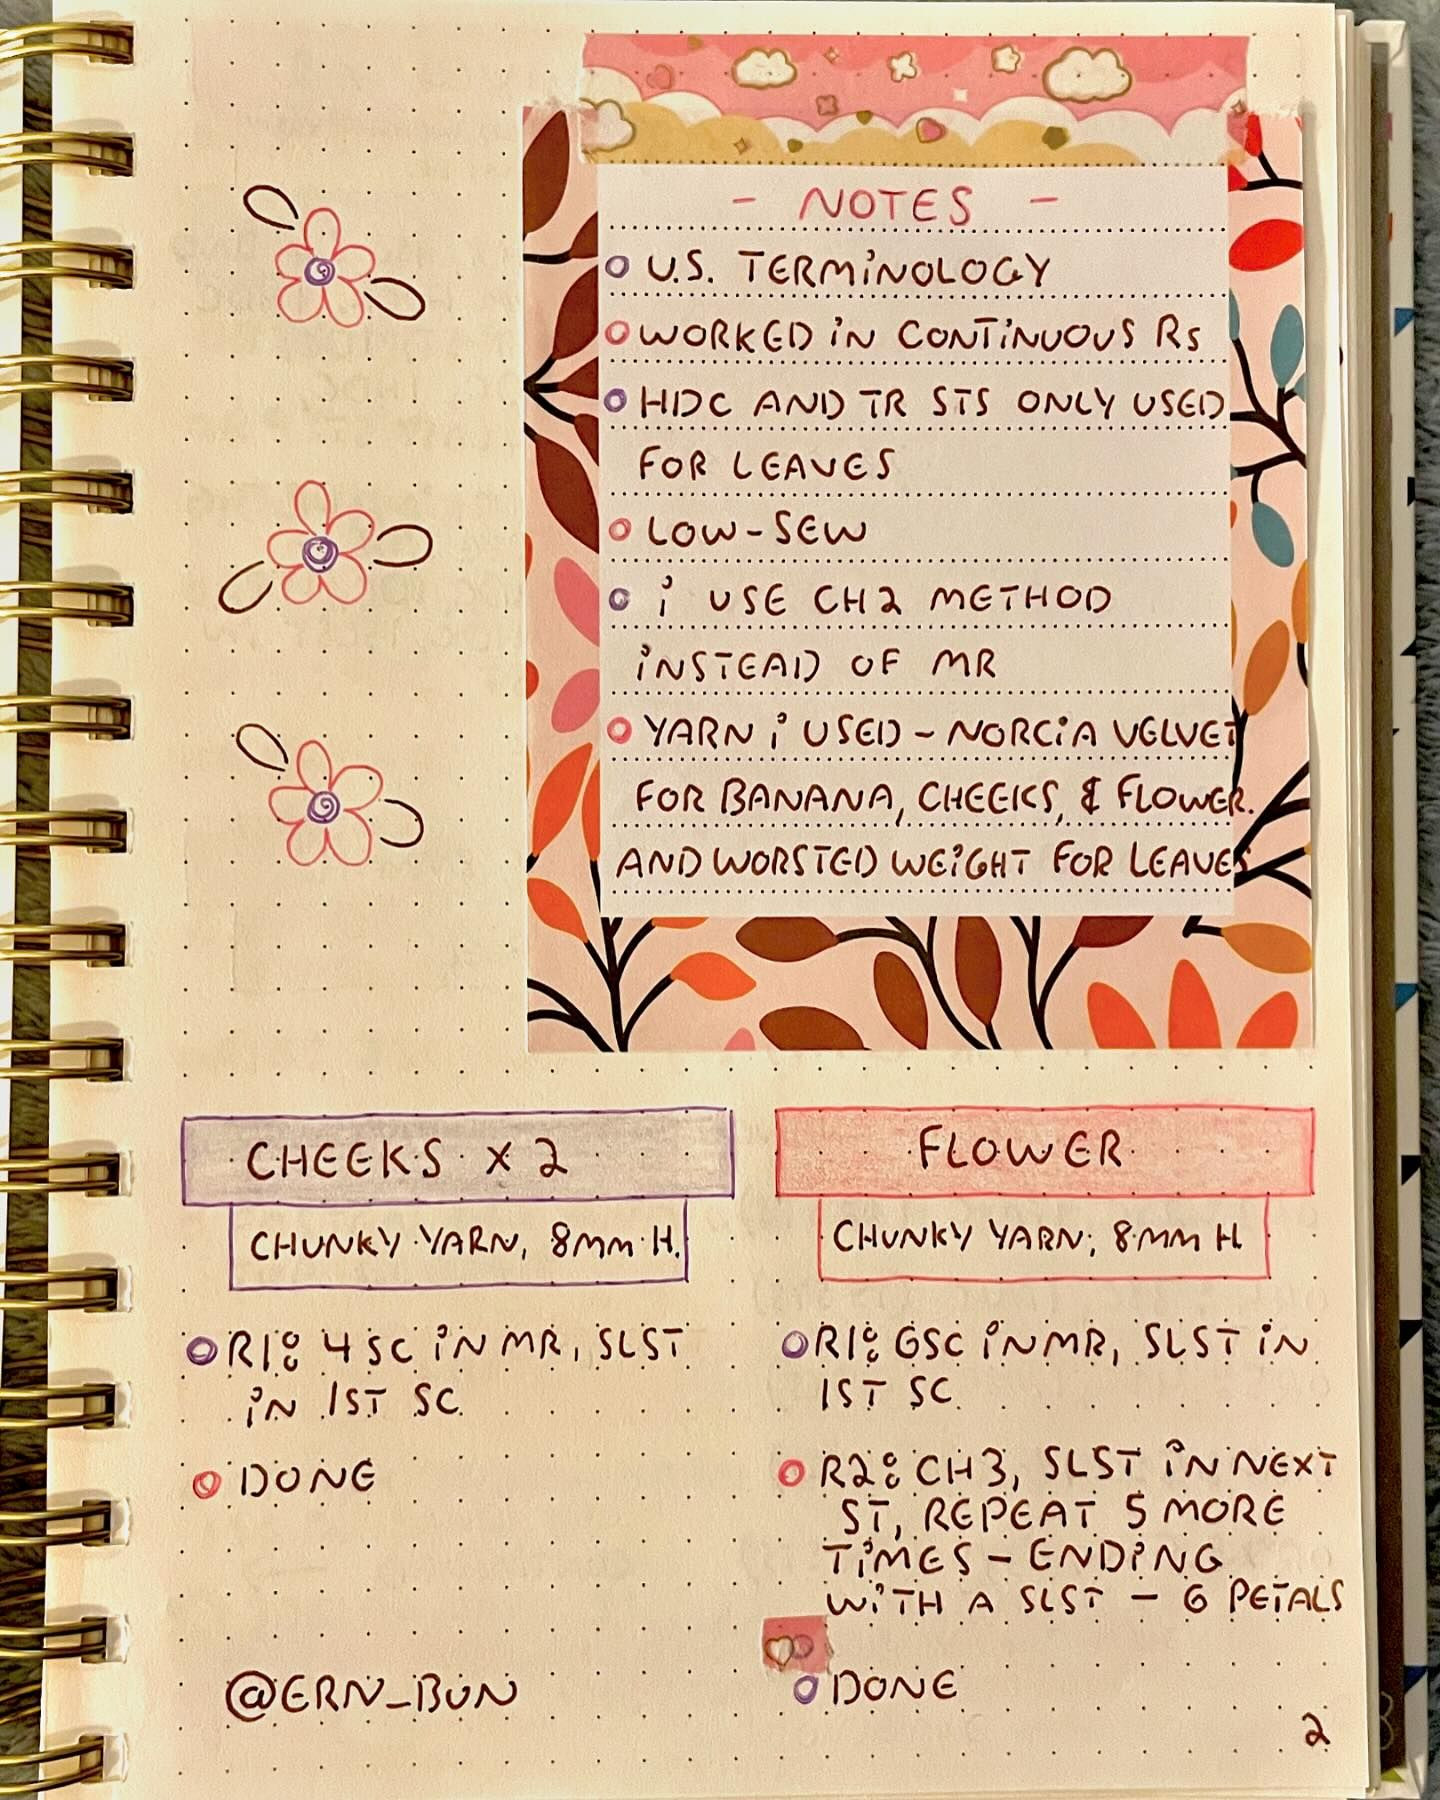 - NOTES -
U.S. TERMINOLOGY
WORKED IN CONTINUOUS RS
HDC AND TR STS ONLY USED
FOR LEAVES
LOW-SEW
I USE CH2 METHOD
INSTEAD OF MR
YARN I USED - NORCIA VELVET
FOR BANANA, CHEEKS, & FLOWER.
AND WORSTED WEIGHT FOR LEAVES
CHEEKS X 2
CHUNKY YARN, 8MM H.
R1: 4 SC IN MR, SLST
IN 1ST SC
DONE
@ERN_BUN
FLOWER
CHUNKY YARN, 8MM H
R1: 6SC IN MR, SLST IN
1ST SC
R2: CH3, SLST IN NEXT
ST, REPEAT 5 MORE
TIMES - ENDING
WITH A SLST - 6 PETALS
DONE
2